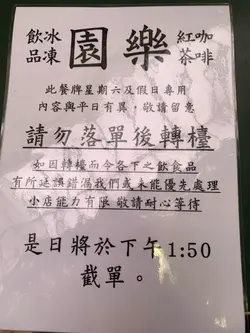 飲品 冰凍 園樂 紅茶 咖啡
此餐牌星期六及假日專用
內容與平日有異，敬請留意
請勿落單後轉檯
如因轉檯而令各下之飲食品
有所延誤錯漏我們或未能優先處理
小店能力有限 敬請耐心等待
是日將於下午1:50
截單。